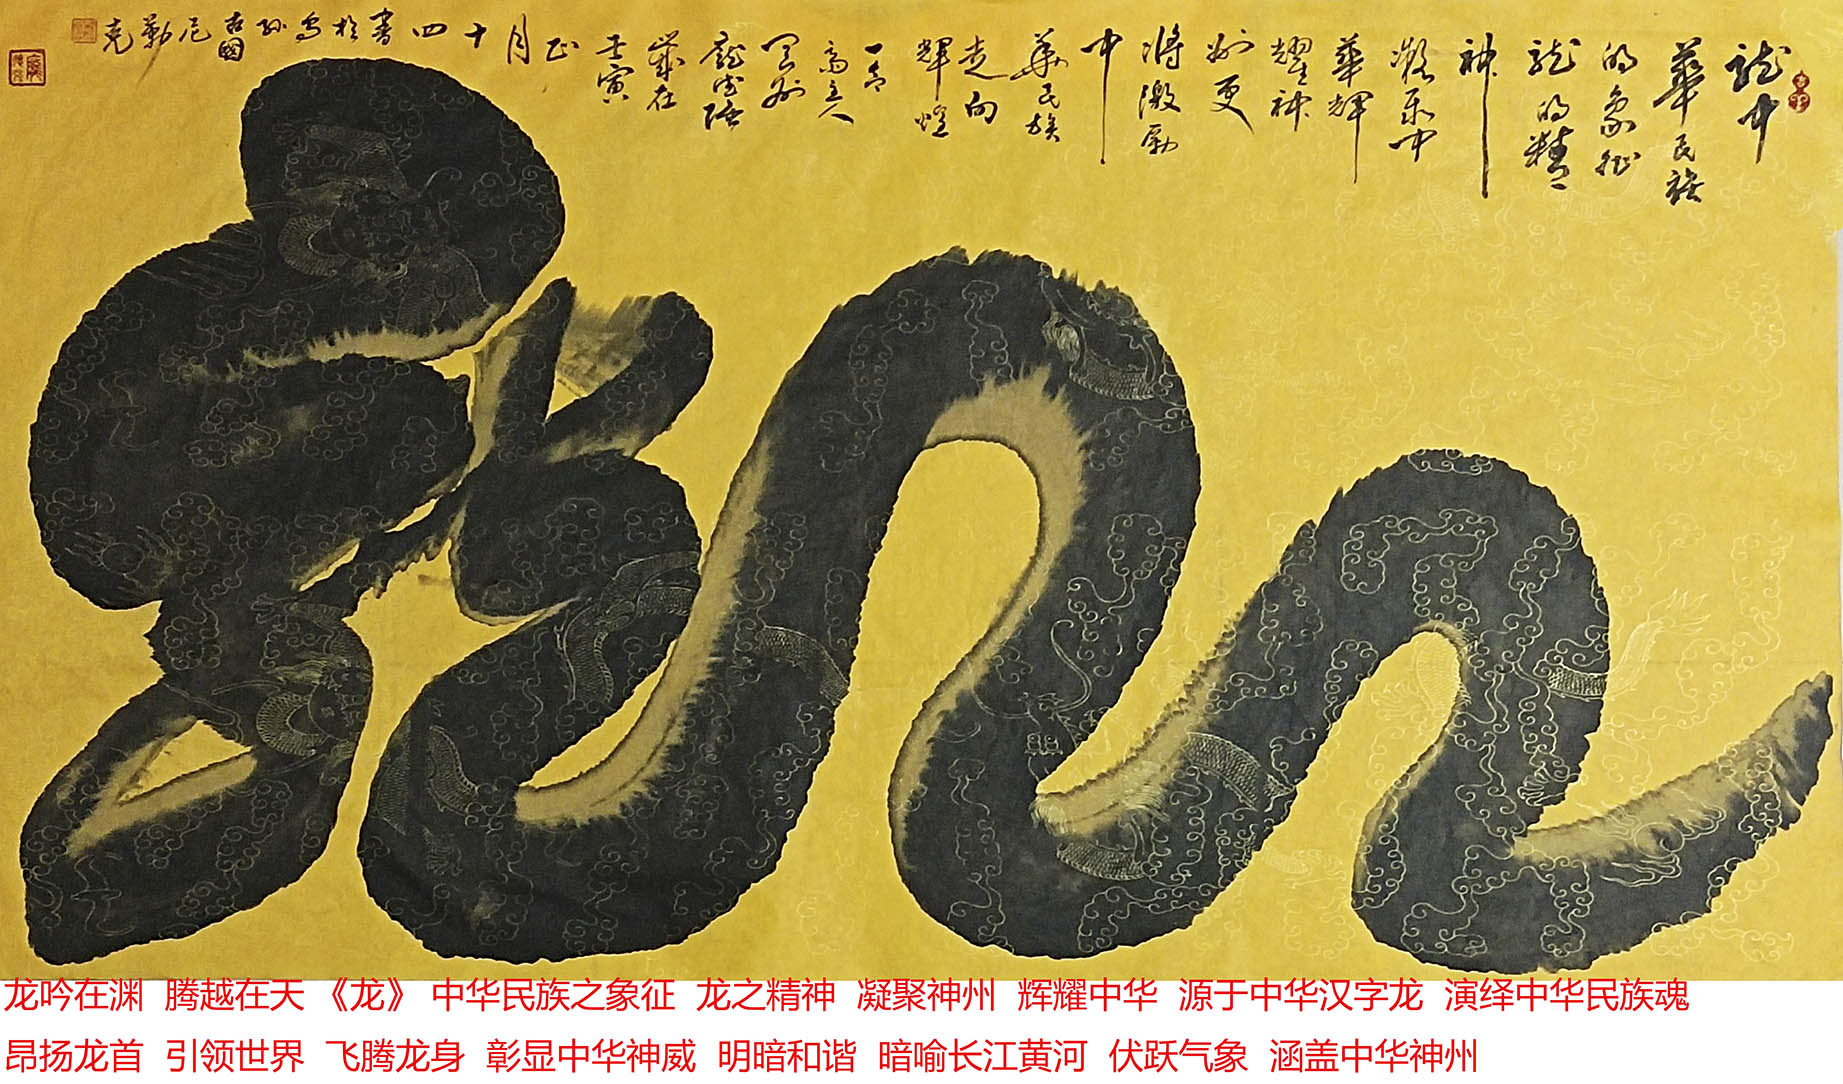 龙中
華民族
的象征
龙的精
神
凝聚中
華輝
耀神
州更
将激勵
中
華民族
走向
輝煌
歲在
壬寅
正
月
十
四
書
於
乌
孙
古國
尼
勒
克
龙
龙吟在渊 腾越在天 《龙》 中华民族之象征 龙之精神 凝聚神州 辉耀中华 源于中华汉字龙 演绎中华民族魂
昂扬龙首 引领世界 飞腾龙身 彰显中华神威 明暗和谐 暗喻长江黄河 伏跃气象 涵盖中华神州